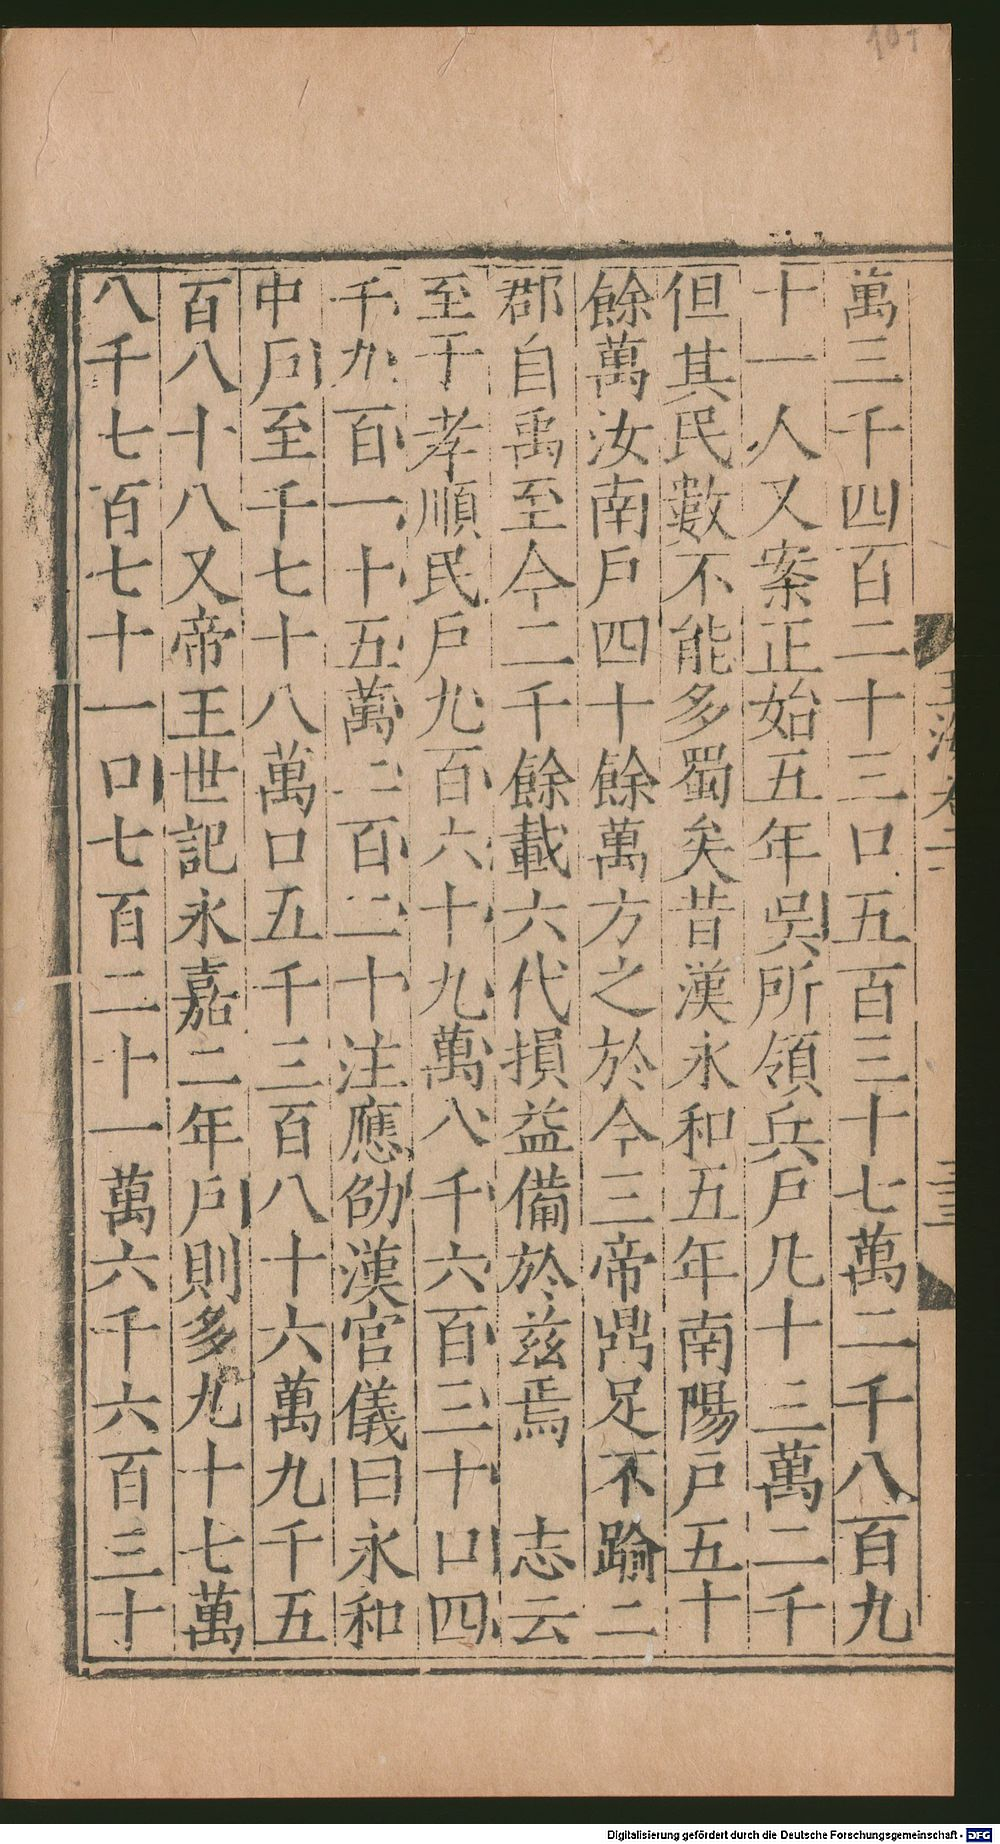 萬三千四百二十三口五百三十七萬二千八百九
十一人又案正始五年吳所領兵戶凡十三萬二千
但其民數不能多蜀矣昔漢永和五年南陽戶五十
餘萬汝南戶四十餘萬方之於今三帝鼎足不踰二
郡自禹至今二千餘載六代損益備於茲焉　志云
至于孝順民戶九百六十九萬八千六百三十口四
千九百一十五萬二百二十注應劭漢官儀曰永和
中戶至千七十八萬口五千三百八十六萬九千五
百八十八又帝王世記永嘉二年戶則多九十七萬
八千七百七十一口七百二十一萬六千六百三十
玉海卷二
三三
101
Digitalisierung gefördert durch die Deutsche Forschungsgemeinschaft - DFG